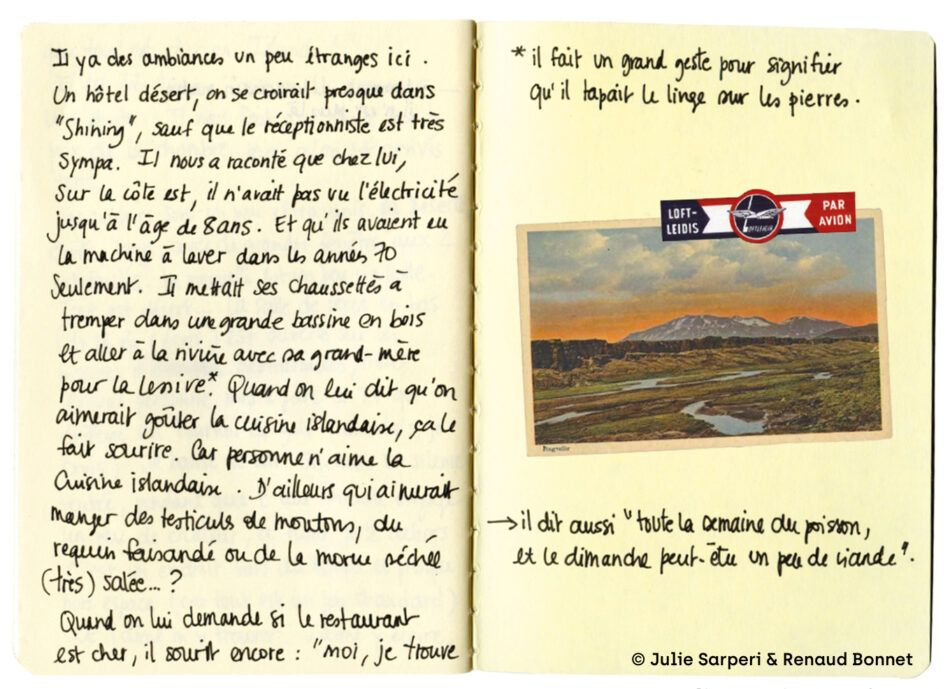 Il y a des ambiances un peu étranges ici.
Un hôtel désert, on se croirait presque dans
"Shining", sauf que le réceptionniste est très
sympa. Il nous a raconté que chez lui,
sur la côte est, il n'avait pas vu l'électricité
jusqu'à l'âge de 8 ans. Et qu'ils avaient eu
la machine à laver dans les années 70
seulement. Il mettait ses chaussettes à
tremper dans une grande bassine en bois
et aller à la rivière avec sa grand-mère
pour la lessive*. Quand on lui dit qu'on
aimerait goûter la cuisine islandaise, ça le
fait sourire. Car personne n'aime la
cuisine islandaise. D'ailleurs qui aimerait
manger des testicules de moutons, du
requin faisandé ou de la morue séchée
(très) salée...?
Quand on lui demande si le restaurant
est cher, il sourit encore : "moi, je trouve
* il fait un grand geste pour signifier
qu'il tapait le linge sur les pierres.
LOFT-
LEIDIS
LOFTLEIDIR
PAR
AVION
Þingvellir
→ il dit aussi "toute la semaine du poisson,
et le dimanche peut-être un peu de viande".
© Julie Sarperi & Renaud Bonnet